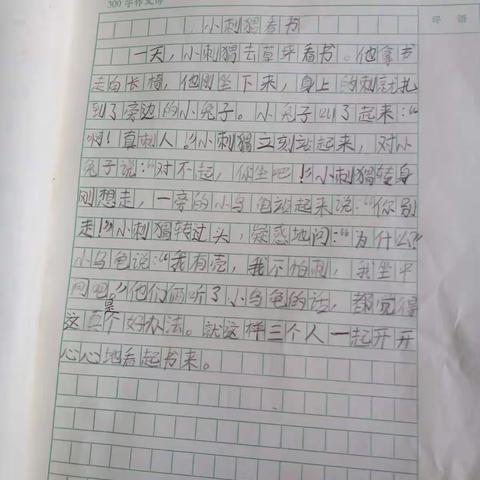 300字作文薄
评 语
小刺猬看书
一天,小刺猬去草平看书。他拿书
走向长椅,他刚坐下来,身上的刺就扎
到了旁边的小兔子。小兔子叫了起来:“
啊!真刺人。”小刺猬立刻站起来,对小
兔子说:“对不起,你坐吧!”小刺猬转身
刚想走,一旁的小乌龟站起来说:“你别
走!”小刺猬转过头,疑惑地问:“为什么?”
小乌龟说:“我有壳,我不怕刺,我坐中
间吧。”他们俩听了小乌龟的话,都觉得
这真是个好办法。就这样三个人一起开开
心心地看起书来。